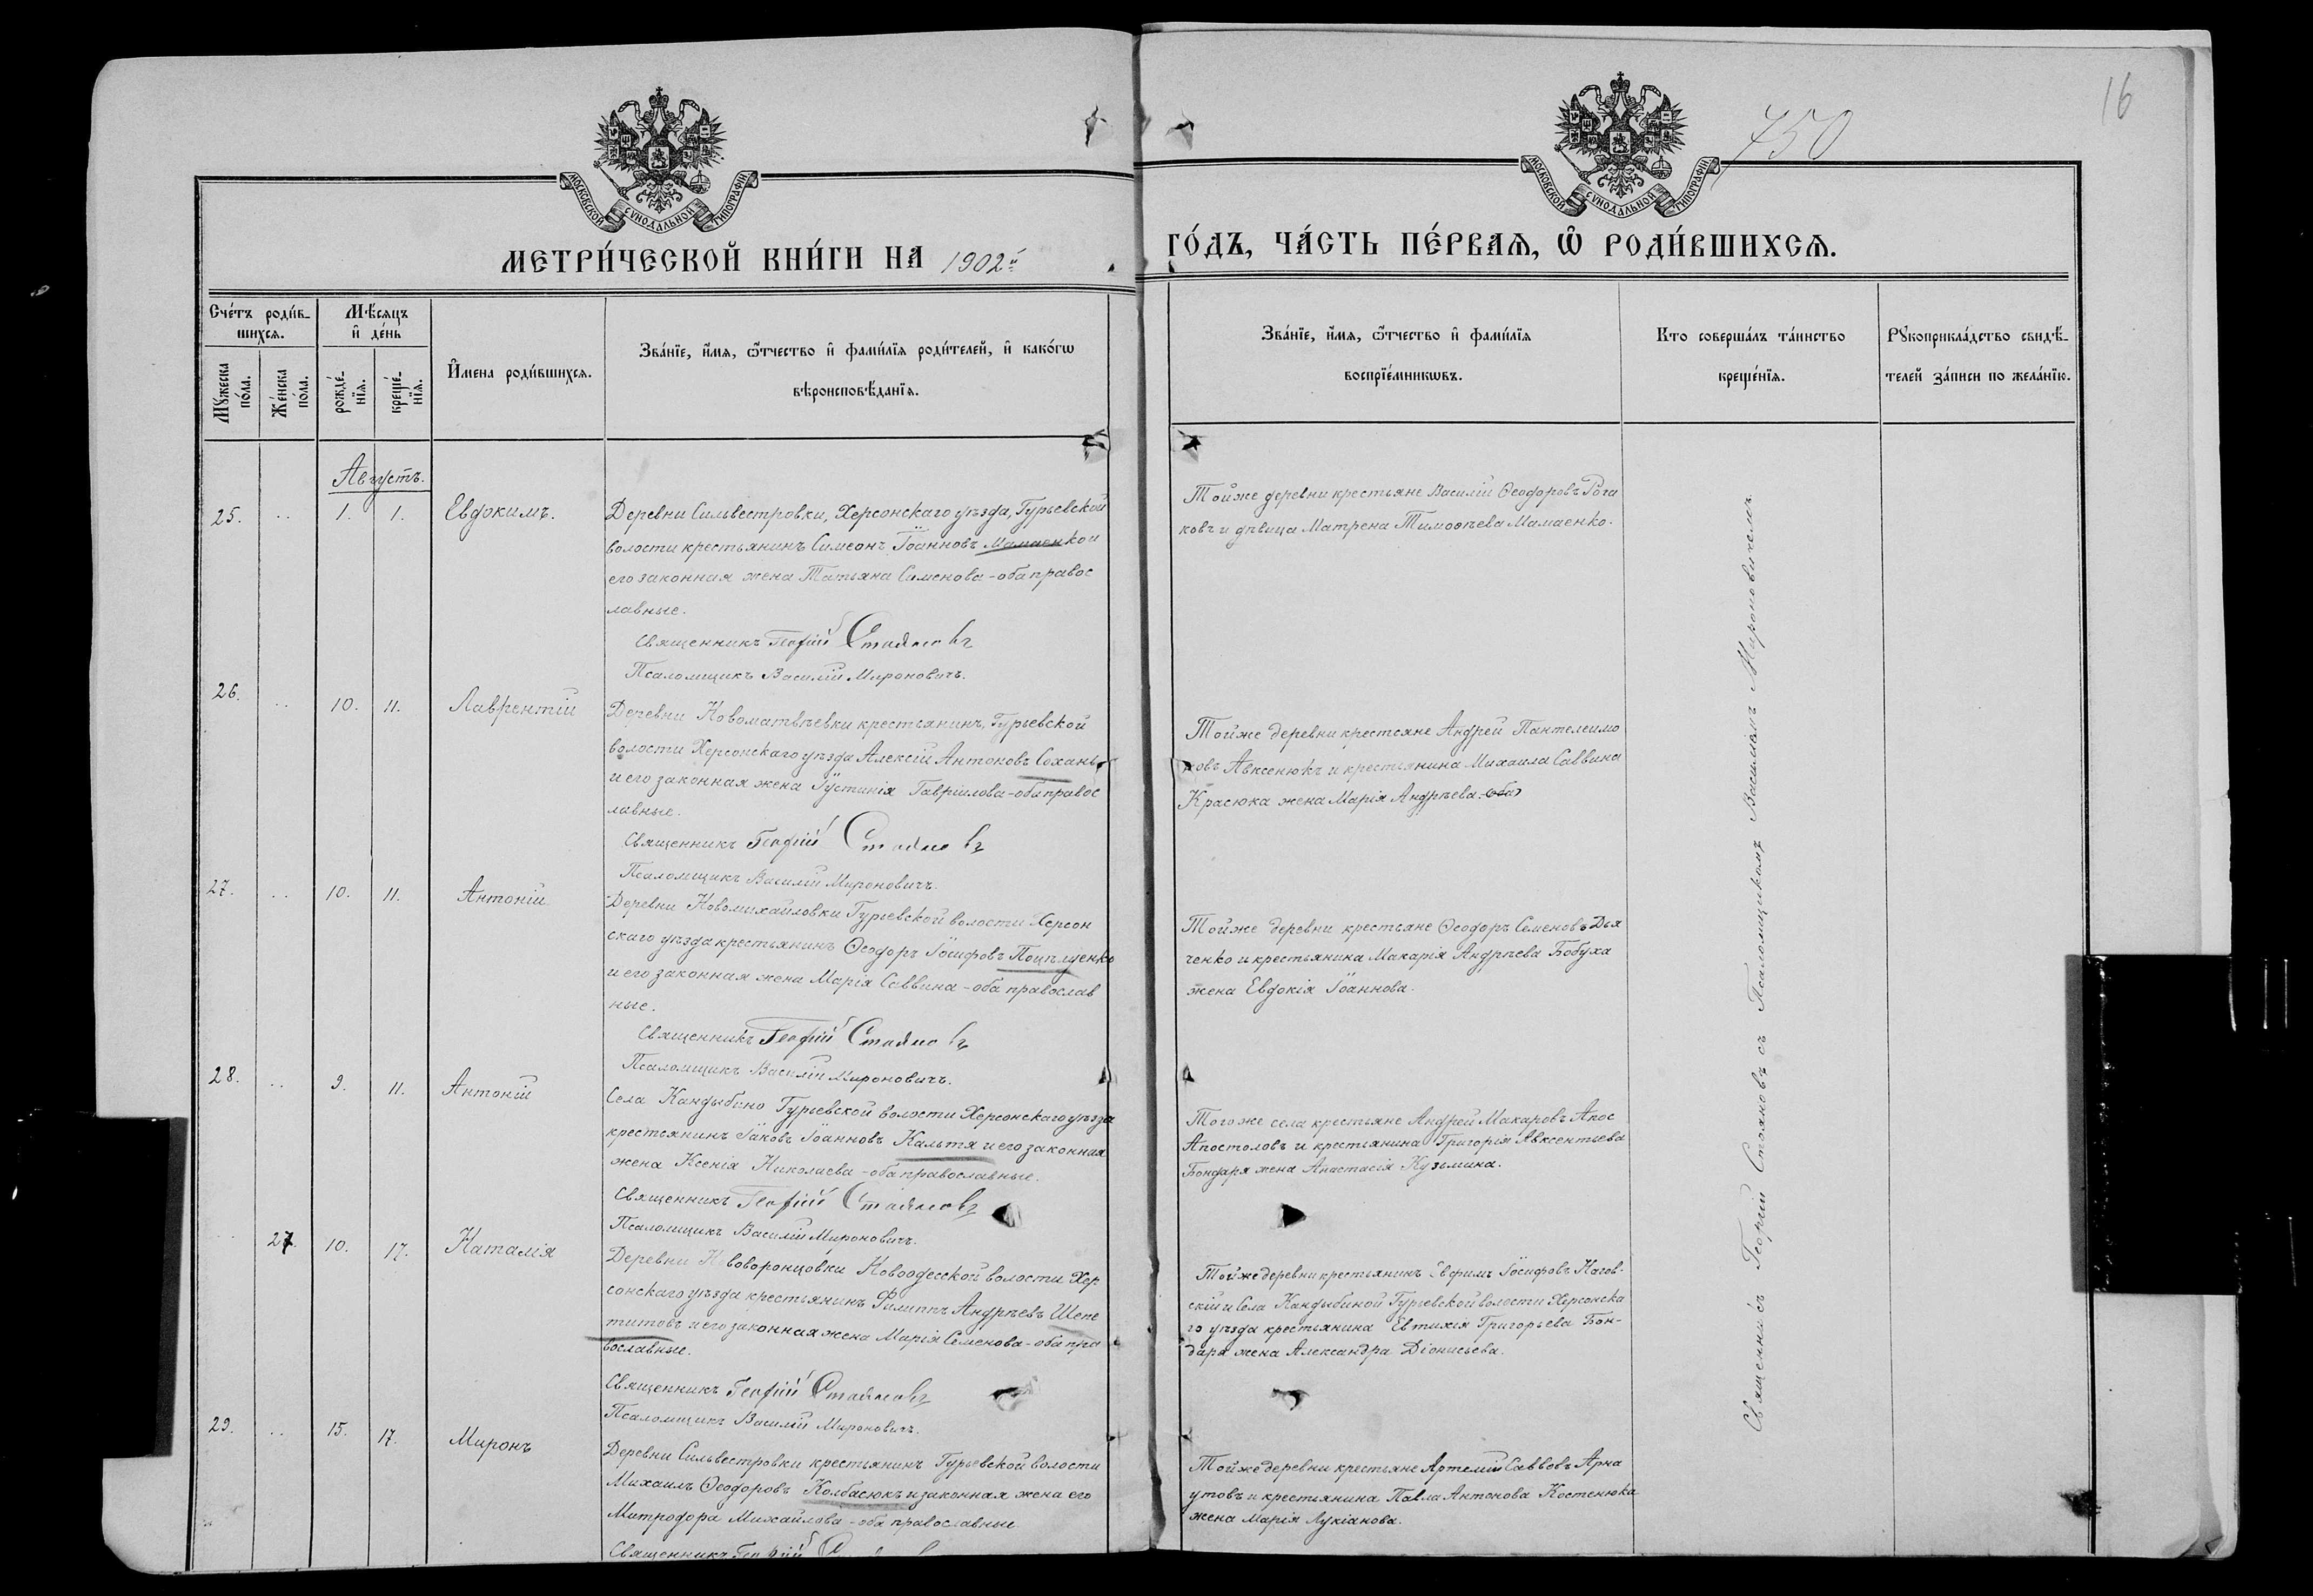 16
750
МОСКОВСКОЙ СѴНОДАЛЬНОЙ ТИПОГРАФІИ
МОСКОВСКОЙ СѴНОДАЛЬНОЙ ТИПОГРАФІИ
МЕТРИ́ЧЕСКОЙ КНИ́ГИ НА 1902й
ГО́ДЪ, ЧА́СТЬ ПЕ́РВАѦ, Ѡ҆ РОДИ́ВШИХСѦ.
Счетъ роди́в-
шихсѧ.
Мѣ́сѧцъ
и҆ де́нь
Мꙋ́жеска
по́ла.
Же́нска
по́ла.
рожде́-
нїѧ.
креще́-
нїѧ.
И҆мена роди́вшихсѧ.
Зва́нїе, и҆́мѧ, ѻ҆́тчество и҆ фами́лїѧ роди́телей, и҆ како́гѡ
вѣроисповѣ́данїѧ.
Зва́нїе, и҆́мѧ, ѻ҆́тчество и҆ фами́лїѧ
воспрїе́мникѡвъ.
Кто соверша́лъ та́инство
креще́нїѧ.
Рꙋкоприкла́дство свидѣ́-
телей за́писи по жела́нїю.
Августъ.
25. .. 1. 1. Евдокимъ.
Деревни Сильвестровки, Херсонскаго уѣзда, Гурьевской
волости крестьянинъ Симеонъ Іоанновъ Мамаенко и
его законная жена Татьяна Сименова - оба правос
лавные.
Священникъ Георгій Стояновъ
Псаломщикъ Василій Мироновичъ.
Тойже деревни крестьяне Василій Ѳеодоровъ Рога
ковъ и дѣвица Матрена Тимоѳѣева Мамаенко.
26. .. 10. 11. Лаврентій
Деревни Новоматвѣевки крестьянинъ, Гурьевской
волости Херсонскаго уѣзда Алексій Антоновъ Сохань
и его законная жена Іустинія Гавріилова - оба правос
лавные.
Священникъ Георгій Стояновъ
Псаломщикъ Василій Мироновичъ.
Тойже деревни крестьяне Андрей Пантелеимо
новъ Авксенюкъ и крестьянина Михаила Саввина
Красюка жена Марія Андрѣева. оба
27. .. 10. 11. Антоній
Деревни Новомихайловки Гурьевской волости Херсон
скаго уѣзда крестьянинъ Ѳеодоръ Іосифовъ Поцѣлуенко
и его законная жена Марія Саввина - оба православ
ные.
Священникъ Георгій Стояновъ
Псаломщикъ Василій Мироновичъ.
Тойже деревни крестьяне Ѳеодоръ Семеновъ Дья
ченко и крестьянина Макарія Андрѣева Бобуха
жена Евдокія Іоаннова.
28. .. 9. 11. Антоній
Села Кандыбино Гурьевской волости Херсонскаго уѣзда
крестьянинъ Іаковъ Іоанновъ Кальтя и его законная
жена Ксенія Николаева - оба православные.
Священникъ Георгій Стояновъ
Псаломщикъ Василій Мироновичъ.
Тогоже села крестьяне Андрей Макаровъ Апос
Апостоловъ и крестьянина Григорія Авксентьева
Бондаря жена Анастасія Кузьмина.
27. 10. 17. Наталія
Деревни Нововоронцовки Новоодесской волости Хер
сонскаго уѣзда крестьянинъ Филиппъ Андрѣевъ Шепе
титовъ и его законная жена Марія Семенова - оба пра
вославные.
Священникъ Георгій Стояновъ
Псаломщикъ Василій Мироновичъ.
Тойже деревни крестьянинъ Евфимъ Іосифовъ Нагов-
скій и Села Кандыбиной Гурьевской волости Херсонска
го уѣзда крестьянина Евтихія Григорьева Бон-
даря жена Александра Діонисьева.
29. .. 15. 17. Миронъ
Деревни Сильвестровки крестьянинъ Гурьевской волости
Михаилъ Ѳеодоровъ Колбасюкъ и законная жена его
Митродора Михайлова - оба православные
Священникъ Георгій
Тойже деревни крестьяне Артемій Саввовъ Арна
утовъ и крестьянина Павла Антонова Костенюка
жена Марія Лукіанова.
Священникъ Георгій Стояновъ съ Псаломщикомъ Василіемъ Мироновичемъ